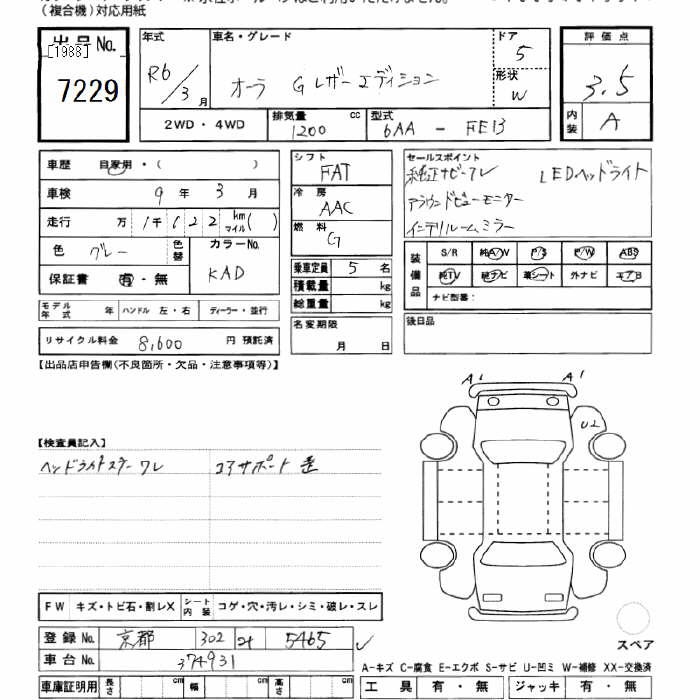 （複合機）対応用紙
出品No. 年式 車名・グレード ドア 評価点
[1988] 5
7229 R6/3月 オーラ G レザーエディション 形状 W 3.5
2WD・4WD 排気量 1200 cc 型式 6AA - FE13 内装 A
車歴 自家用・( ) シフト FAT セールスポイント
車検 9年 3月 冷房 AAC 純正ナビ・TV LEDヘッドライト
走行 万 1千 1 2 2 km マイル( ) 燃料 G アラウンドビューモニター
インテリルームミラー
色 グレー 色替 カラーNo. KAD
装備品 S/R 純A/W P/S P/W ABS
保証書 有・無 乗車定員 5名 純TV 純ナビ 革シート 外ナビ エアB
積載量 kg ナビ型番：
モデル年式 年 ハンドル 左・右 ディーラー・並行 総重量 kg
リサイクル料金 8,600 円 預託済 名変期限 月 日 後日品
【出品店申告欄(不良箇所・欠品・注意事項等)】
A1 A1
U2
【検査員記入】
コアサポート
FW キズ・トビ石・割レX シート内装 コゲ・穴・汚レ・シミ・破レ・スレ
登録No. 京都 302 5465
スペア
車台No. 374931
A-キズ C-腐食 E-エクボ S-サビ U-凹ミ W-補修 XX-交換済
車庫証明用 長さ cm 幅 cm 高さ cm 工具 有・無 ジャッキ 有・無